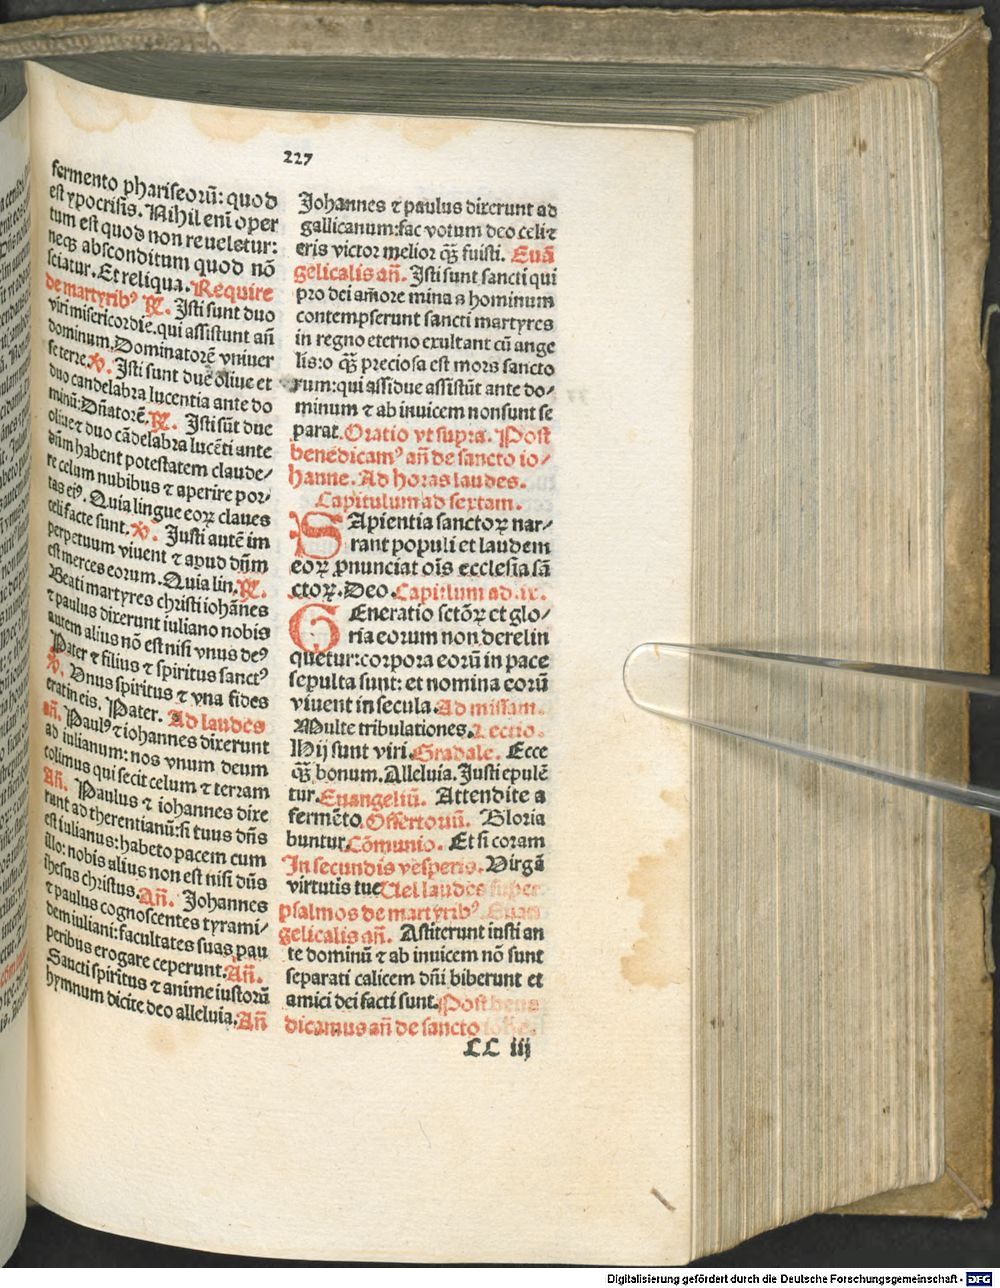 227
fermento phariseorū: quod
est ypocrisis. Nihil enī oper
tum est quod non reueletur:
neqꝫ absconditum quod nō
sciatur. Et reliqua. Require
de martyribꝰ ℟. Isti sunt duo
viri misericordie. qui assistunt añ
dominum. Dominatorē vniuer
se terre. ℣. Isti sunt due oliue et
duo candelabra lucentia ante do
minū: Dn̄atorē. ℟. Isti sūt due
oliue ⁊ duo cādelabra lucēti ante
dn̄m habent potestatem claude⸗
re celum nubibus ⁊ aperire por⸗
tas eiꝰ. Quia lingue eoꝝ claues
celi facte sunt. ℣. Iusti autē im
perpetuum viuent ⁊ apud dn̄m
est merces eorum. Quia lin. ℟.
Beati martyres christi iohānes
⁊ paulus dixerunt iuliano nobis
autem alius nō est nisi vnus deꝰ
Pater ⁊ filius ⁊ spiritus sanctꝰ
℣. Unus spiritus ⁊ vna fides
erat in eis. Pater. Ad laudes
añ. Paulꝰ ⁊ iohannes dixerunt
ad iulianum: nos vnum deum
colimus qui fecit celum ⁊ terram
Añ. Paulus ⁊ iohannes dixe
runt ad therentianū: si tuus dn̄s
est iulianus: habeto pacem cum
illo: nobis alius non est nisi dn̄s
ihesus christus. Añ. Johannes
⁊ paulus cognoscentes tyrami⸗
dem iuliani: facultates suas pau
peribus erogare ceperunt. Añ.
Sancti spiritus ⁊ anime iustorū
hymnum dicite deo alleluia. Añ
Johannes ⁊ paulus dixerunt ad
gallicanum: fac votum deo celi ⁊
eris victor melior qꝫ̄ fuisti. Euā
gelicalis añ. Isti sunt sancti qui
pro dei amore minas hominum
contempserunt sancti martyres
in regno eterno exultant cū ange
lis: o qꝫ̄ preciosa est mors sancto
rum: qui assidue assistūt ante do⸗
minum ⁊ ab inuicem non sunt se
parat. Oratio vt supra. Post
benedicamꝰ añ de sancto io⸗
hanne. Ad horas laudes.
Capitulum ad sextam.
SApientia sanctoꝝ nar⸗
rant populi et laudem
eoꝝ ꝓnunciat oīs ecclesia sā
ctoꝝ. Deo. Capitlum ad .ix.
GEneratio sctōꝝ et glo⸗
ria eorum non derelin
quetur: corpora eorū in pace
sepulta sunt: et nomina eorū
viuent in secula. Ad missam.
Multe tribulationes. Lectio.
Hij sunt viri. Gradale. Ecce
qꝫ̄ bonum. Alleluia. Justi epulē
tur. Euangeliū. Attendite a
fermēto. Offertoriū. Gloria
buntur. Cōmunio. Et si coram
In secundis vesperis. Virgā
virtutis tue Uel laudes super
psalmos de martyribꝰ. Euan
gelicalis añ. Astiterunt iusti an
te dominū ⁊ ab inuicem nō sunt
separati calicem dn̄i biberunt et
amici dei facti sunt. Post bene
dicamus añ de sancto ioh̄e.
LL iij
Digitalisierung gefördert durch die Deutsche Forschungsgemeinschaft - DFG